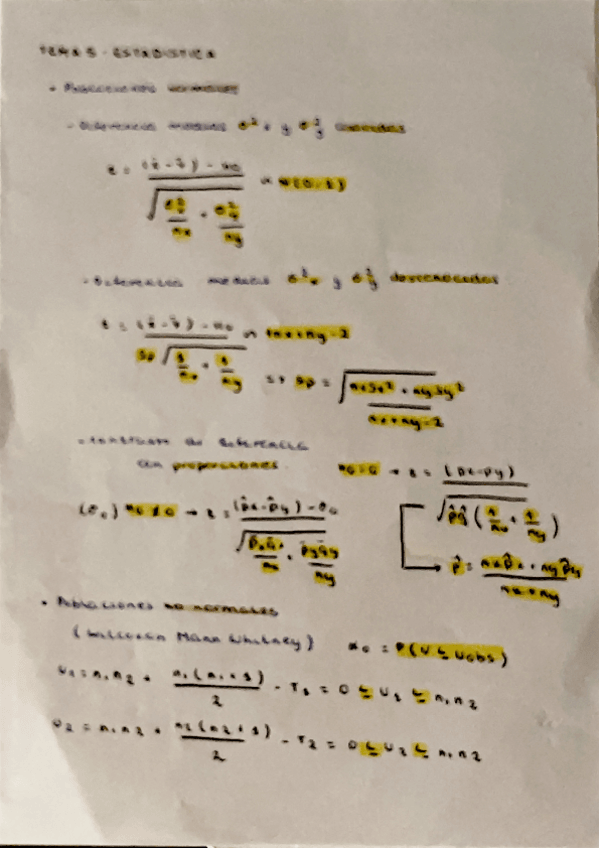 TEMA 5 - ESTADISTICA
• Poblaciones normales
- Diferencia medias σ²x y σ²y conocidas
z = (x̄ - ȳ) - μ0 / √(σ²x/nx + σ²y/ny) ~ N(0,1)
- Diferencia medias σ²x y σ²y desconocidas
t = (x̄ - ȳ) - μ0 / Sp √(1/nx + 1/ny) ~ tnx+ny-2
=> Sp = √(nxSx² + nySy² / nx+ny-2)
- Contraste de diferencia
con proporciones
(px-py) / √(p̂q̂ (1/nx + 1/ny))
(θ0) ≠ 0 → z = (p̂x - p̂y) - θ0 / √(p̂xq̂x/nx + p̂yq̂y/ny)
p̂ = nxp̂x + nyp̂y / nx+ny
• Poblaciones no normales
(Wilcoxon Mann Whitney) = P(U ≤ Uobs)
U1 = n1n2 + n1(n1+1)/2 - T1 = 0 ≤ U1 ≤ n1n2
U2 = n1n2 + n2(n2+1)/2 - T2 = 0 ≤ U2 ≤ n1n2